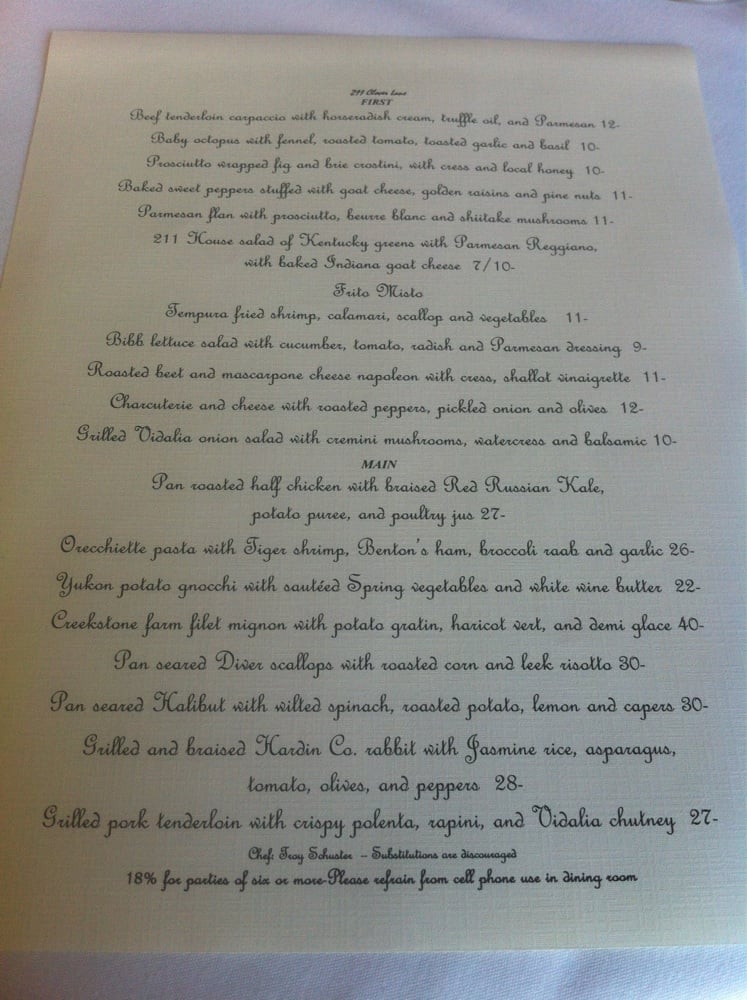 211 Clover Lane
FIRST
Beef tenderloin carpaccio with horseradish cream, truffle oil, and Parmesan 12-
Baby octopus with fennel, roasted tomato, toasted garlic and basil 10-
Prosciutto wrapped fig and brie crostini, with cress and local honey 10-
Baked sweet peppers stuffed with goat cheese, golden raisins and pine nuts 11-
Parmesan flan with prosciutto, beurre blanc and shiitake mushrooms 11-
211 House salad of Kentucky greens with Parmesan Reggiano,
with baked Indiana goat cheese 7/10-
Frito Misto
Tempura fried shrimp, calamari, scallop and vegetables 11-
Bibb lettuce salad with cucumber, tomato, radish and Parmesan dressing 9-
Roasted beet and mascarpone cheese napoleon with cress, shallot vinaigrette 11-
Charcuterie and cheese with roasted peppers, pickled onion and olives 12-
Grilled Vidalia onion salad with cremini mushrooms, watercress and balsamic 10-
MAIN
Pan roasted half chicken with braised Red Russian Kale,
potato puree, and poultry jus 27-
Orecchiette pasta with Tiger shrimp, Benton's ham, broccoli raab and garlic 26-
Yukon potato gnocchi with sautéed Spring vegetables and white wine butter 22-
Creekstone farm filet mignon with potato gratin, haricot vert, and demi glace 40-
Pan seared Diver scallops with roasted corn and leek risotto 30-
Pan seared Halibut with wilted spinach, roasted potato, lemon and capers 30-
Grilled and braised Hardin Co. rabbit with Jasmine rice, asparagus,
tomato, olives, and peppers 28-
Grilled pork tenderloin with crispy polenta, rapini, and Vidalia chutney 27-
Chef: Troy Schuster - Substitutions are discouraged
18% for parties of six or more-Please refrain from cell phone use in dining room